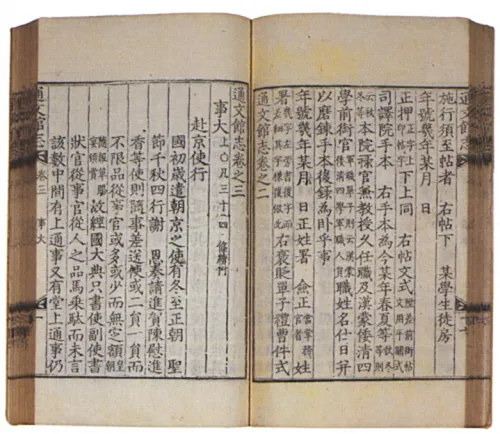 施行須至帖者 右帖下 某學生徒房
年號幾年某月 日
正押 下上同 右帖文式
司譯院手本 右手本爲今某年春夏等
本院祿官無教授久任職及漢蒙倭清四
學前銜官 職姓名仕日幷
以磨鍊手本後錄爲卧乎事
年號幾年某月 日正姓署 僉正 姓
署 右褒貶單子禮曹件式
通文館志卷之二
通文館志卷之三
事大 上○凡三十四條
赴京使行
國初歲遣朝京之使有冬至正朝 聖
節千秋四行謝 恩奏請進賀陳慰進
香等使則隨事差送使或二員一員而
不限品從事官或多或少而無定額
故經國大典只書使副使書
狀官從事官從人之品馬乘馱而未言
該數中間有上通事又有堂上通事仍
通文館志 卷三 事大 一